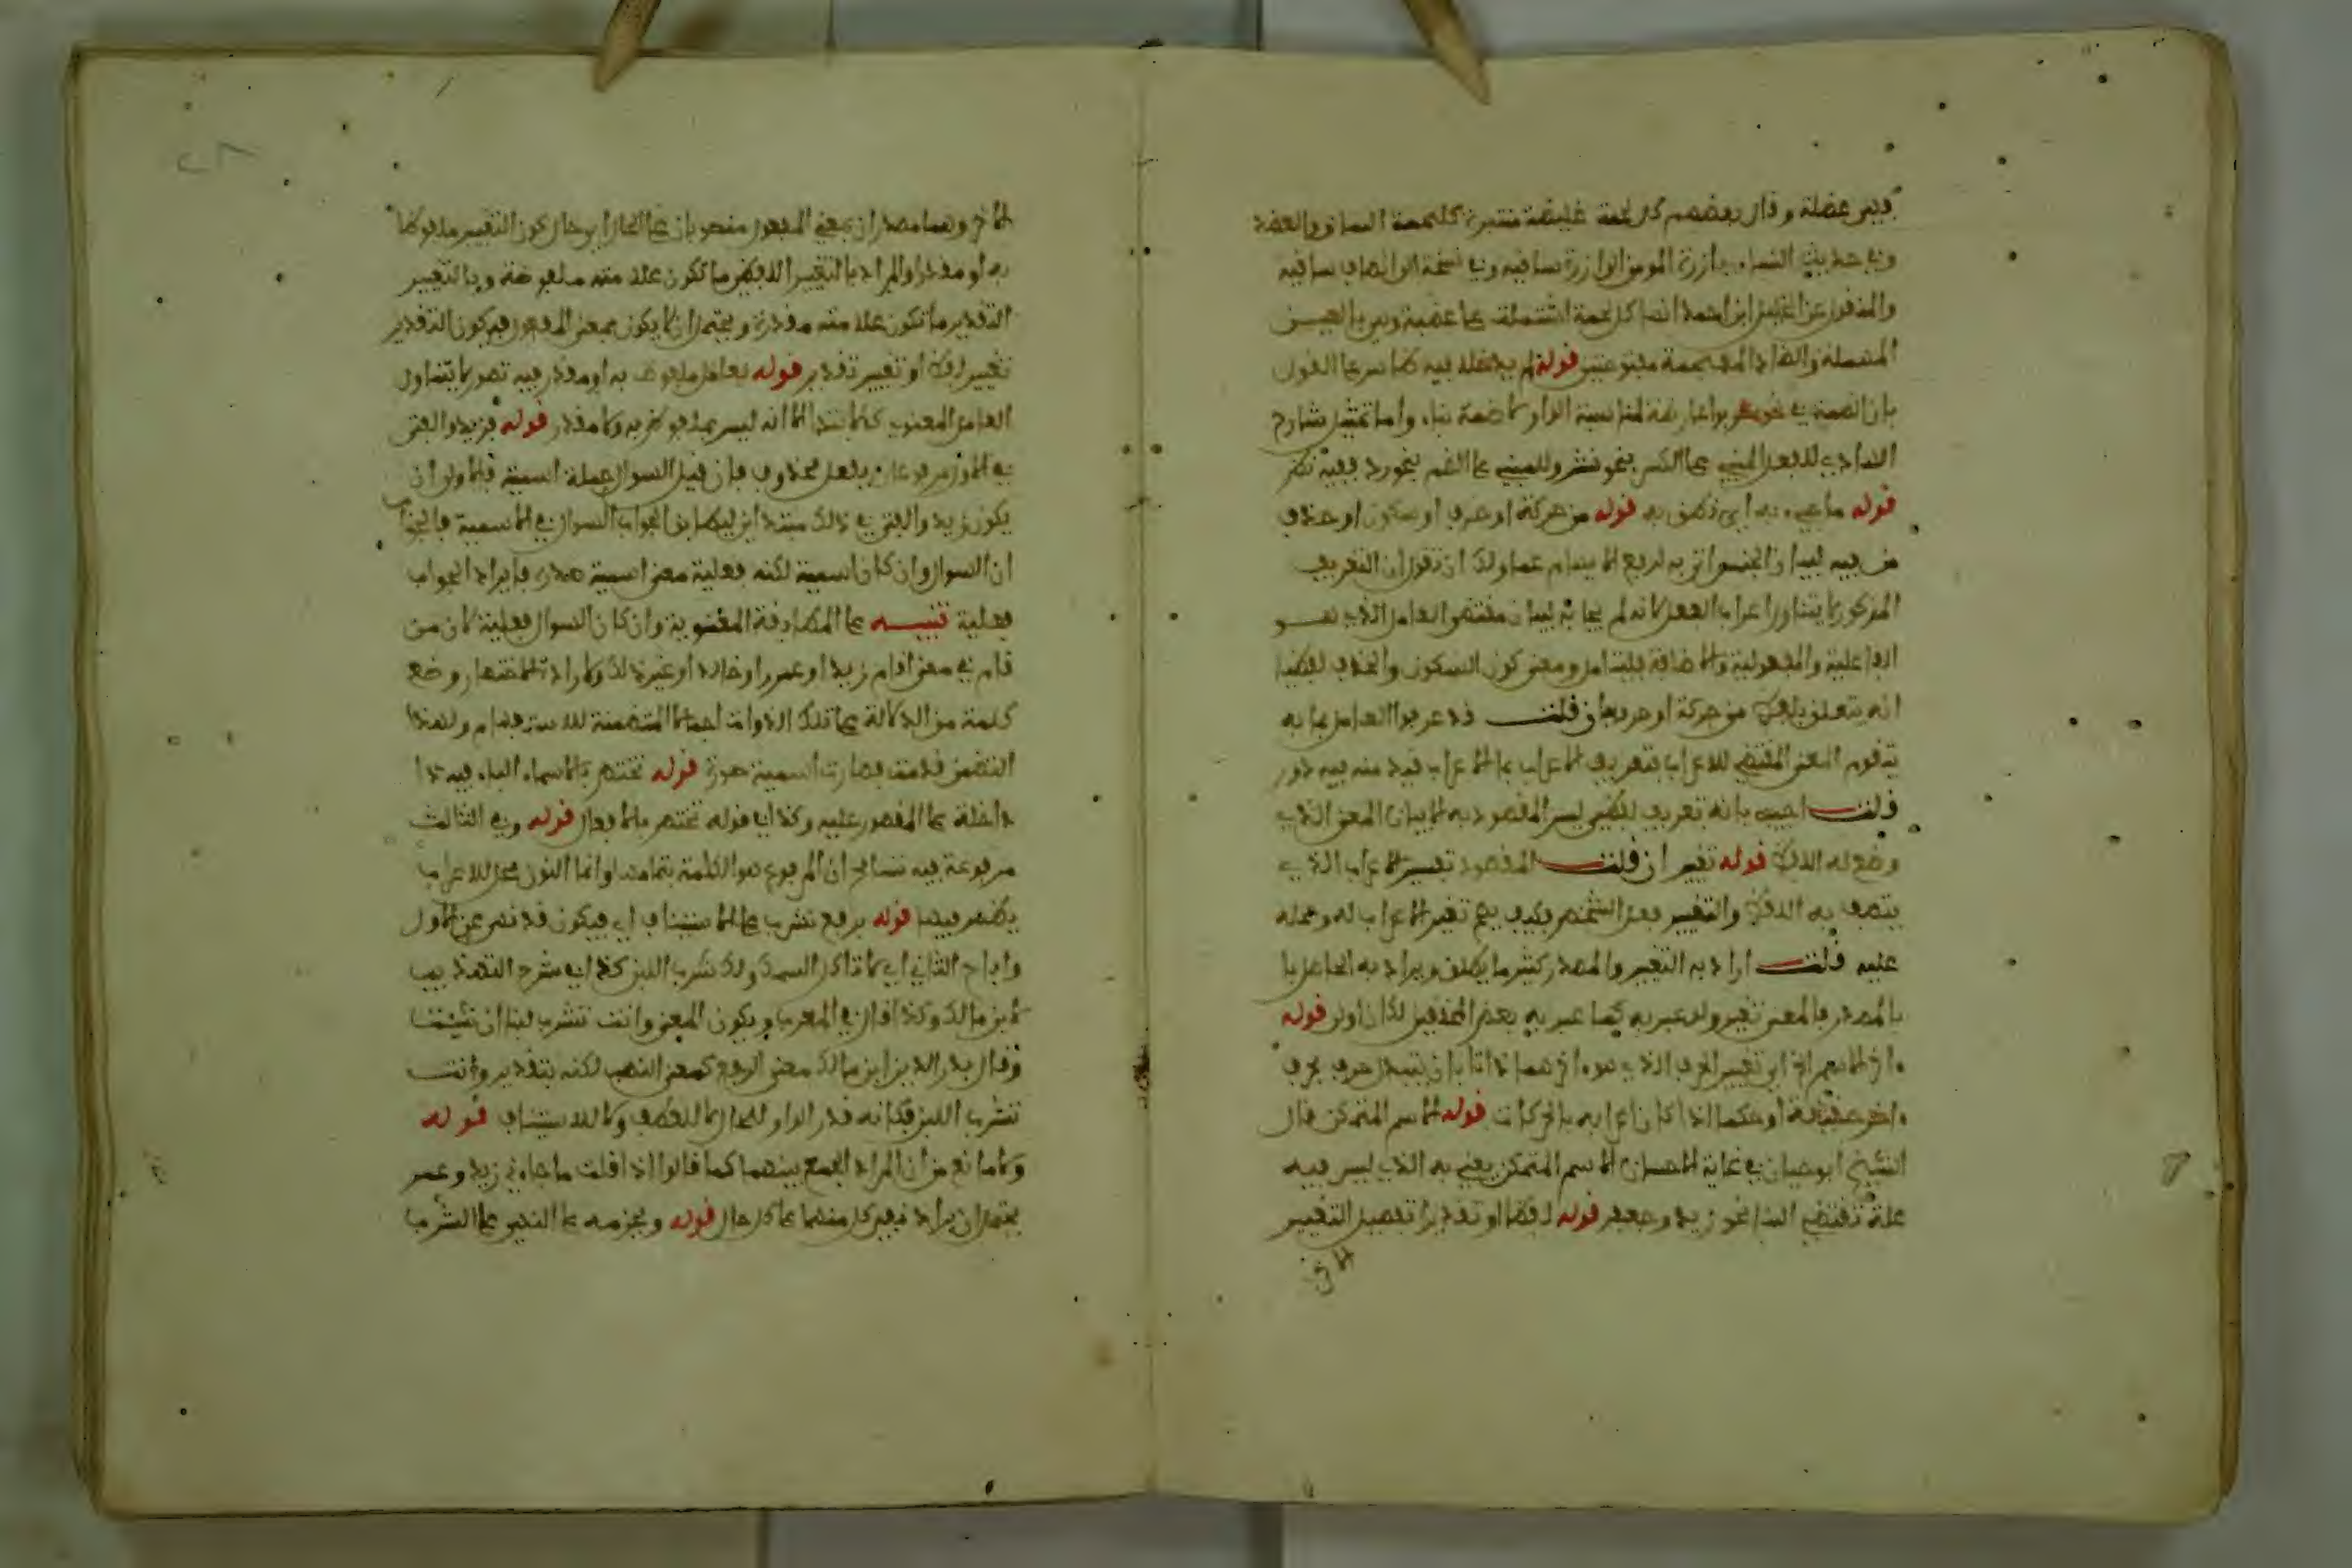 فهي عضلة وقال بعضهم كل لحمة غليظة منتبرة كلحمة الساق والعضد
وفي حديث النساء بازرة المومن الى ازرة ساقيه وفي نسخة الى انصاف ساقيه
والمنقول عن الخليل ابن احمد انها كل لحمة اشتملت على عصبة وهي بالعين
المهملة والضاد المعجمة مفتوحتين قوله لم يدخله فيه كما سر على القول
بان الضمة في نحو هو لمناسبة الواو لا ضمة بناء واما تمثيل شارح
للفعل المبني على الكسر بنحو شر وللمبني على الضم بنحو رد ففيه نظر
قوله ما جيء به اي نطق به قوله من حركة او حرف او سكون او حذف
من فيه لبيان الجنس اتي به لرفع الابهام عما ولك ان تقول ان التعريف
المذكور لا يتناول اعراب الفعل لانه لم يجا به لبيان مقتضى العامل الذي هو
الفاعلية والمفعولية والاضافة فليتامل ومعنى كون السكون والحذف لفظيا
انه يتعلق بلفظ من حركة او حرف فان قلت قد عرفوا العامل بما به
يتقوم المعنى المقتضي للاعراب فتعريف الاعراب بالاعراب فيه دور
قلت اجيب بانه تعريف لفظي ليس المقصود به الا بيان المعنى الذي
وضع له اللفظ قوله تغير ان قلت المقصود تفسير الاعراب الذي
يتصف به اللفظ والتغيير فعل الشخص فكيف يصح تفسير الاعراب له وحمله
عليه قلت اراد به التغيير والمصدر كثيرا ما يطلق ويراد به الحاصل
بالمصدر فالمعنى تغير ولو عبر به كما عبر به بعض المحققين لكان اولى قوله
اخر الاسم الخ اي تغيير الحرف الذي هو اخرهما ذاتا بان يتبدل حرف بحرف
اخر حقيقة او حكما اذا كان اعرابه بالحركات قوله الاسم المتمكن قال
الشيخ ابو حيان في غاية الاحسان الاسم المتمكن يعني به الذي ليس فيه
علة تقتضي البنا نحو زيد وجعفر قوله لفظا او تقديرا تفصيل التغيير
الاخ
الاخ وهما مصدران بمعنى المفعول منصوبان على الحال اي حال كون التغيير ملفوظا
به او مقدرا والمراد بالتغيير اللفظي ما تكون علامته ملفوظة وبالتغيير
التقديري ما تكون علامته مقدرة ويحتمل ان لا يكون بمعنى المفعول فيكون التقدير
تغيير لفظ او تغيير تقدير قوله بعامل ملفوظ به او مقدر فيه قصور لا يتناول
العامل المعنوي كالابتدا الا انه ليس بملفوظ به ولا مقدر قوله فزيد والفتى
في الاول مرفوعان بفعل محذوف فان قيل السوال جملة اسمية فالاولى ان
يكون زيد والفتى في ذلك مبتدا اي ليطابق الجواب السوال في الاسمية فالجواب
ان السوال وان كان اسمية لكنه فعلية معنى اسمية صدره بايراد الجواب
فعلية تنبيه على المطابقة المعنوية وان كان السوال فعلية لان من
قام في معنى اقام زيد او عمرو او خالد او غير ذلك ولارادة الاختصار وضع
كلمة من الدلالة على تلك الذوات اجمالا المتضمنة للاستفهام ولهذا
التضمن قدمت فصارت اسمية صورة قوله تختص بالاسماء الباء فيه
داخلة على المقصور عليه وكذا في قوله تختص بالافعال قوله وفي الثالث
مرفوعة فيه تسامح ان المرفوع هو الكلمة بتمامها وانما النون محل للاعراب
يظهر فيها قوله برفع تشرب على الاستيناف اي فيكون قد نهى عن الاول
واباح الثاني اي لا تاكل السمك ولك شرب اللبن كذا في شرح التقدمة
لابن مالك وكذا قال في المعرب ويكون المعنى وانت تشرب لبنا ان شئت
وقال بدر الدين ابن مالك معنى الرفع كمعنى النصب لكنه بتقدير وانت
تشرب اللبن فكانه قدر الواو للحال لا للعطف ولا للاستيناف قوله
ولا مانع من ان المراد الجمع بينهما كما قالوا اذا قلت ما جاءني زيد وعمر
يحتمل ان يراد نفي كل منهما على كل حال قوله وبجزمه على النهي على الشرب